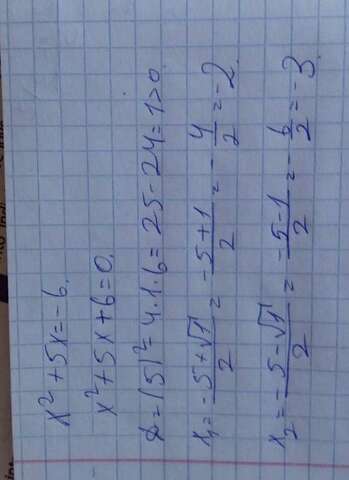 x²+5x=-6.
x²+5x+6=0.
D=(5)²-4·1·6=25-24=1>0.
x₁=\frac{-5+√1}{2}=\frac{-5+1}{2}=-\frac{4}{2}=-2.
x₂=\frac{-5-√1}{2}=\frac{-5-1}{2}=-\frac{6}{2}=-3